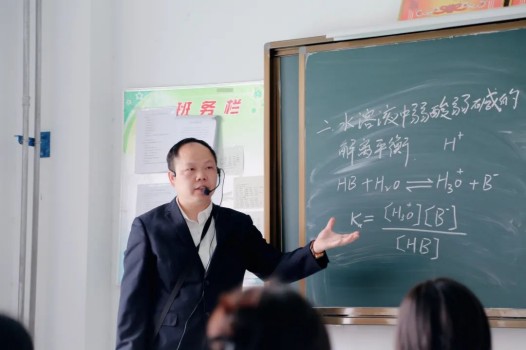 班务栏
二、水溶液中弱酸弱碱的
解离平衡 H⁺
HB + H₂O ⇌ H₃O⁺ + B⁻
K = [H₃O⁺][B⁻]
[HB]